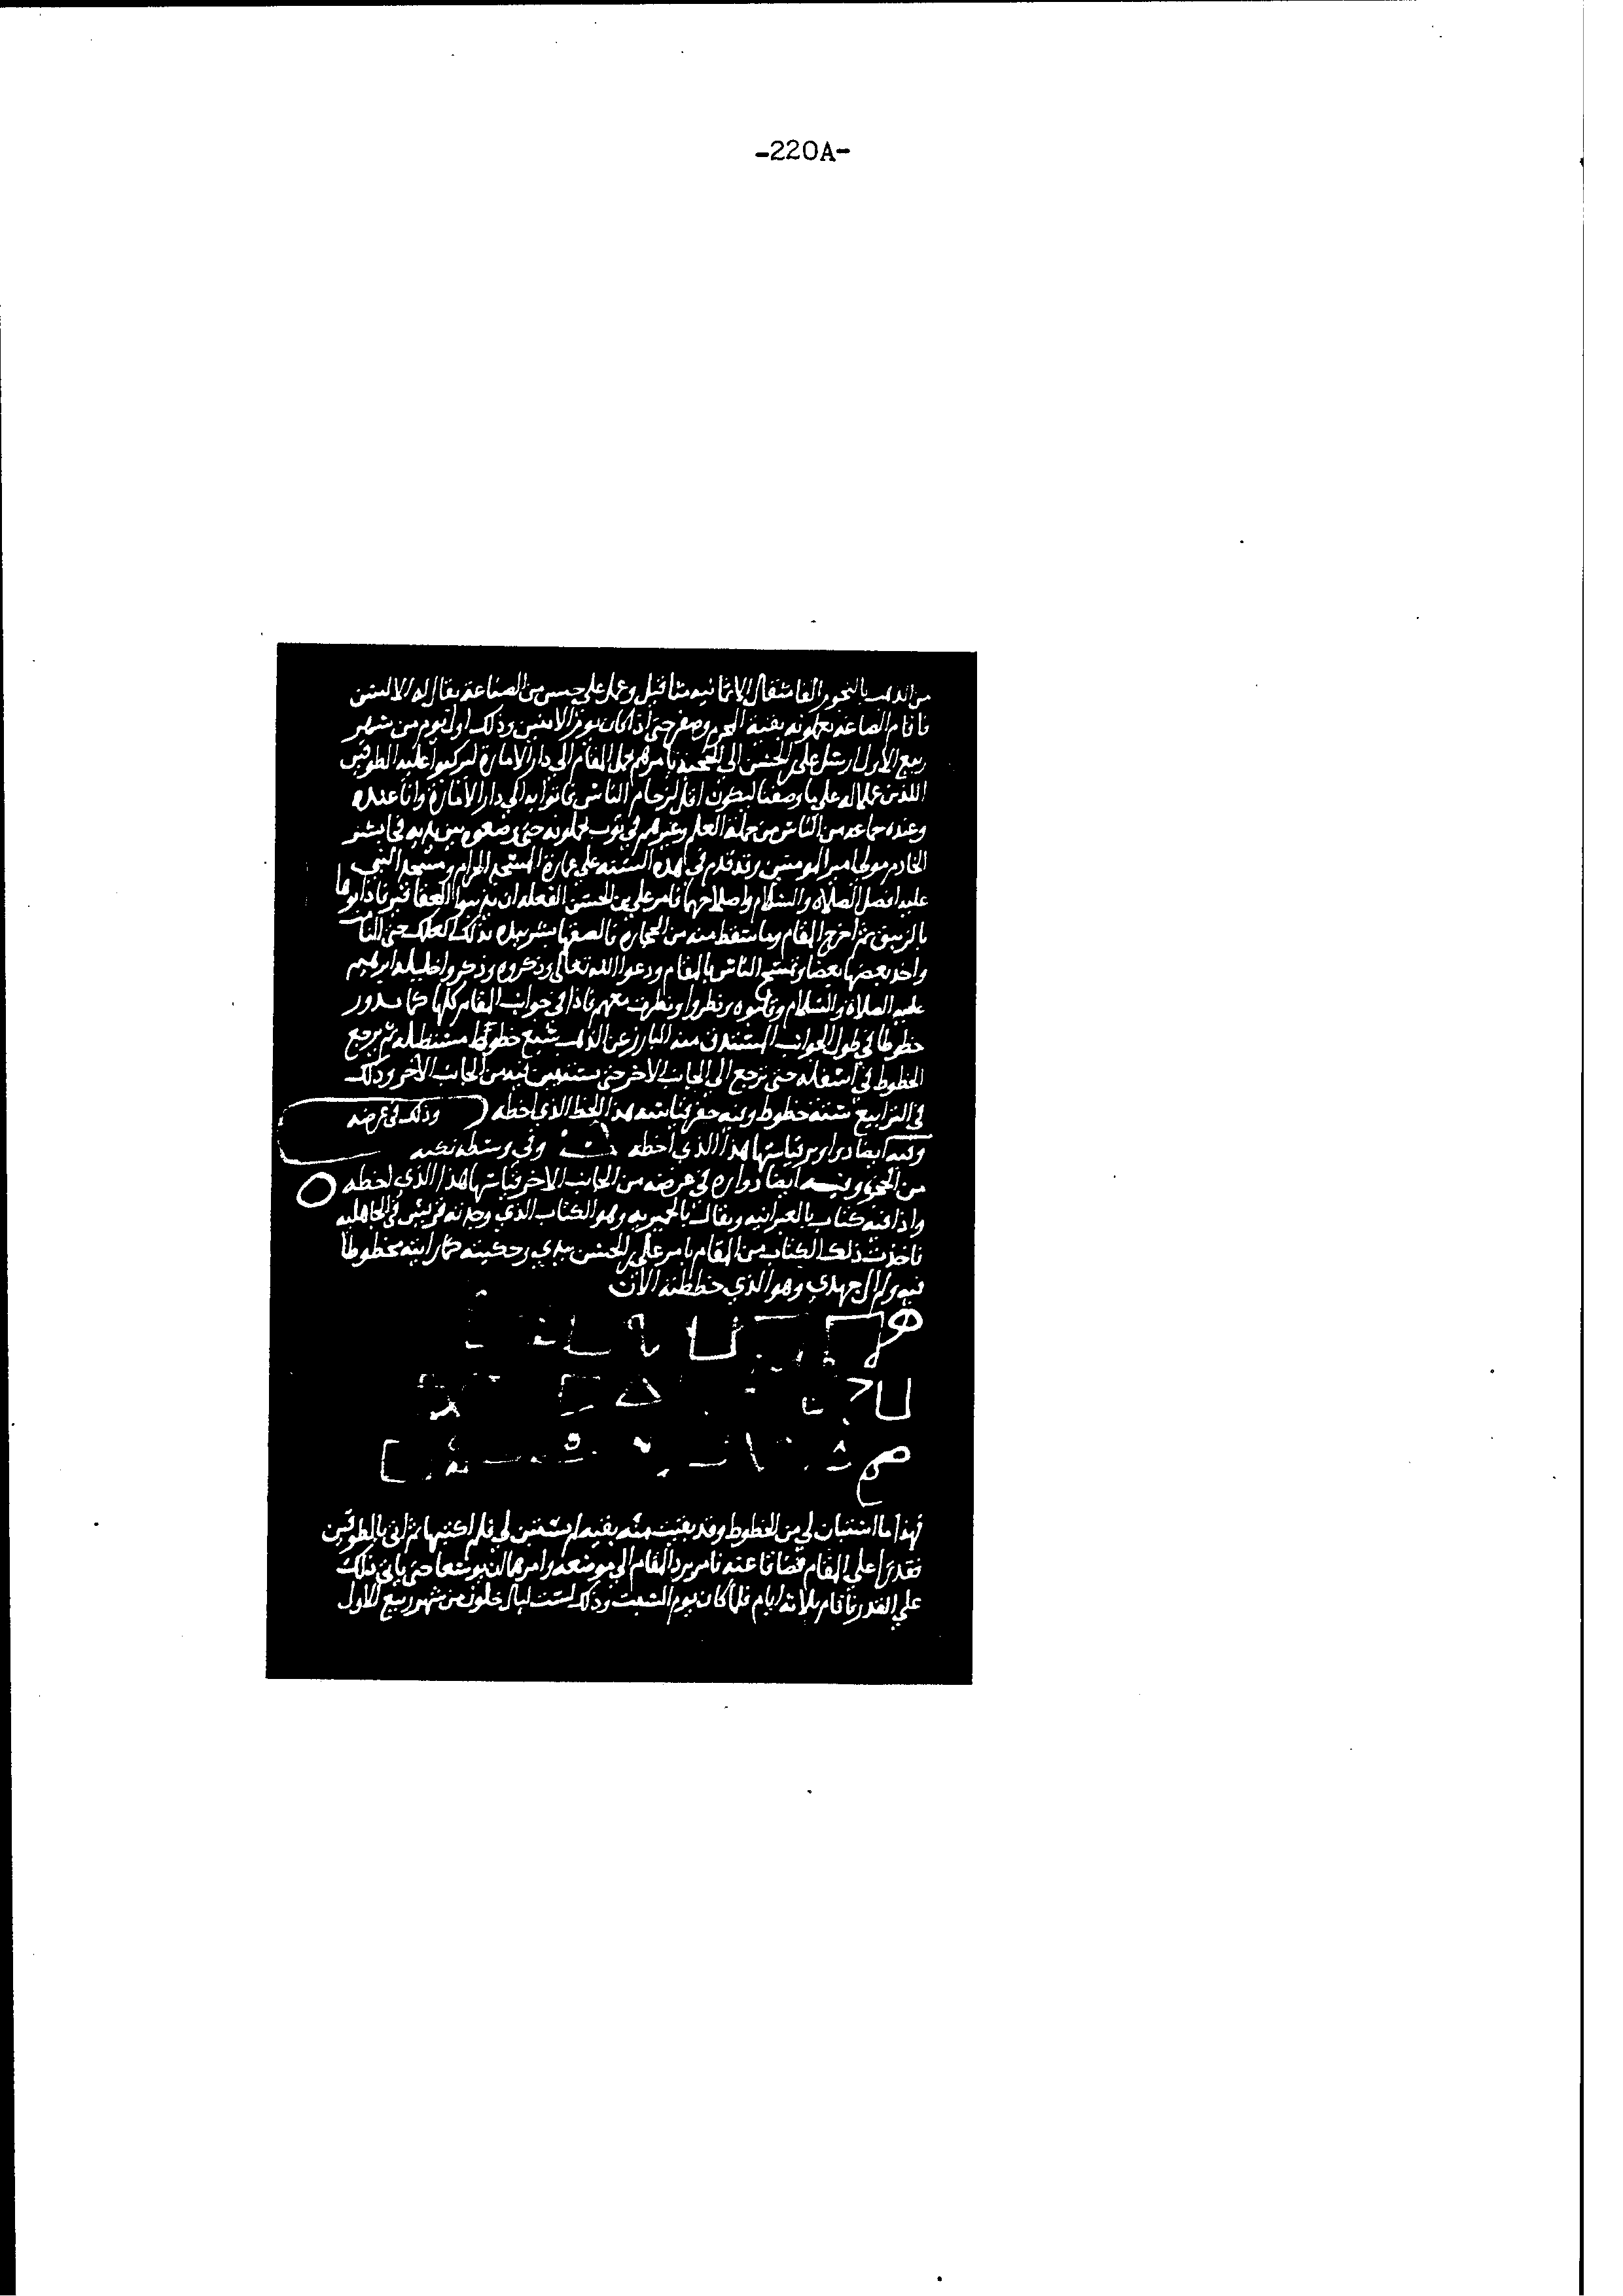 -220A-
من الذهب بالنجوم الفا مثقال الا ثمانيه مثاقيل وعمل على جبس من الصناعة يقال له الالسن
فاقام الصاغه يعملونه بقية المحرم وصفر حتى اذا كان يوم الاثنين وذلك اول يوم من شهر
ربيع الاول ارسل علي بن الحسن الى الحجبه يامرهم بحمل المقام الى دار الامارة ليركبوا عليه الطوقين
اللذين عملا له على ما وصفنا ليكون اقل لزحام الناس فاتوا به الى دار الامارة وانا عنده
وعنده جماعه من الناس من حملة العلم وغيرهم في ثوب يحملونه حتى وضعوه بين يديه فجا بشر
الخادم مولى امير المومنين وقد قدم في هذه السنه على عمارة المسجد الحرام ومسجد النبي
عليه افضل الصلاه والسلام واصلاحهما فامر علي بن الحسن الفعله ان يذيبوا العقاقير فاذابوها
بالزيبق ثم اخرج المقام وما سقط منه من الحجارة فالصقها بشر بيده بذلك العلك حتى التأ
واخذ بعضها بعضا وتمسح الناس بالمقام ودعوا الله تعالى وذكروه وذكروا خليله ابرهيم
عليه الصلاة والسلام وقلبوه ونظروا ونظرت معهم فاذا في جوانب المقام كلها كما يدور
خطوطا في طول الجوانب المستدق منه البارز عن الذهب سبع خطوط مستطيله ثم يرجع
الخطوط في اسفله حتى ترجع الى الجانب الاخر حتى يستبين فيه من الجانب الاخر وذلك
في الترابيع ستة خطوط وفيه حفر قياسه هذا الخط الذي اخطه وذلك في عرضه
وفيه ايضا دواوير قياسها هذا الذي اخطه وفي وسطه نكبه
من الحجر وفيه ايضا دواره في عرضه من الجانب الاخر قياسها هذا الذي اخطه
واذا فيه كتاب بالعبرانيه ويقال بالحميريه وهو الكتاب الذي وجدته قريش في الجاهليه
فاخذت ذلك الكتاب من المقام بامر علي بن الحسن بيدي وحكيته كما رايته مخطوطا
فيه ولم ال جهدي وهو الذي خططته الان
فهذا ما استبان لي من الخطوط وقد بقيت منه بقيه لم يستبين لي فلم اكتبها ثم اتى بالطوقين
فقدرا على المقام فضاقا عنه فامر برد المقام الى موضعه وامرهما ان يوسعا حتى ياتي ذلك
على القدر فاقام ثلاثه ايام فلما كان يوم السبت وذلك لست ليال خلون من شهر ربيع الاول